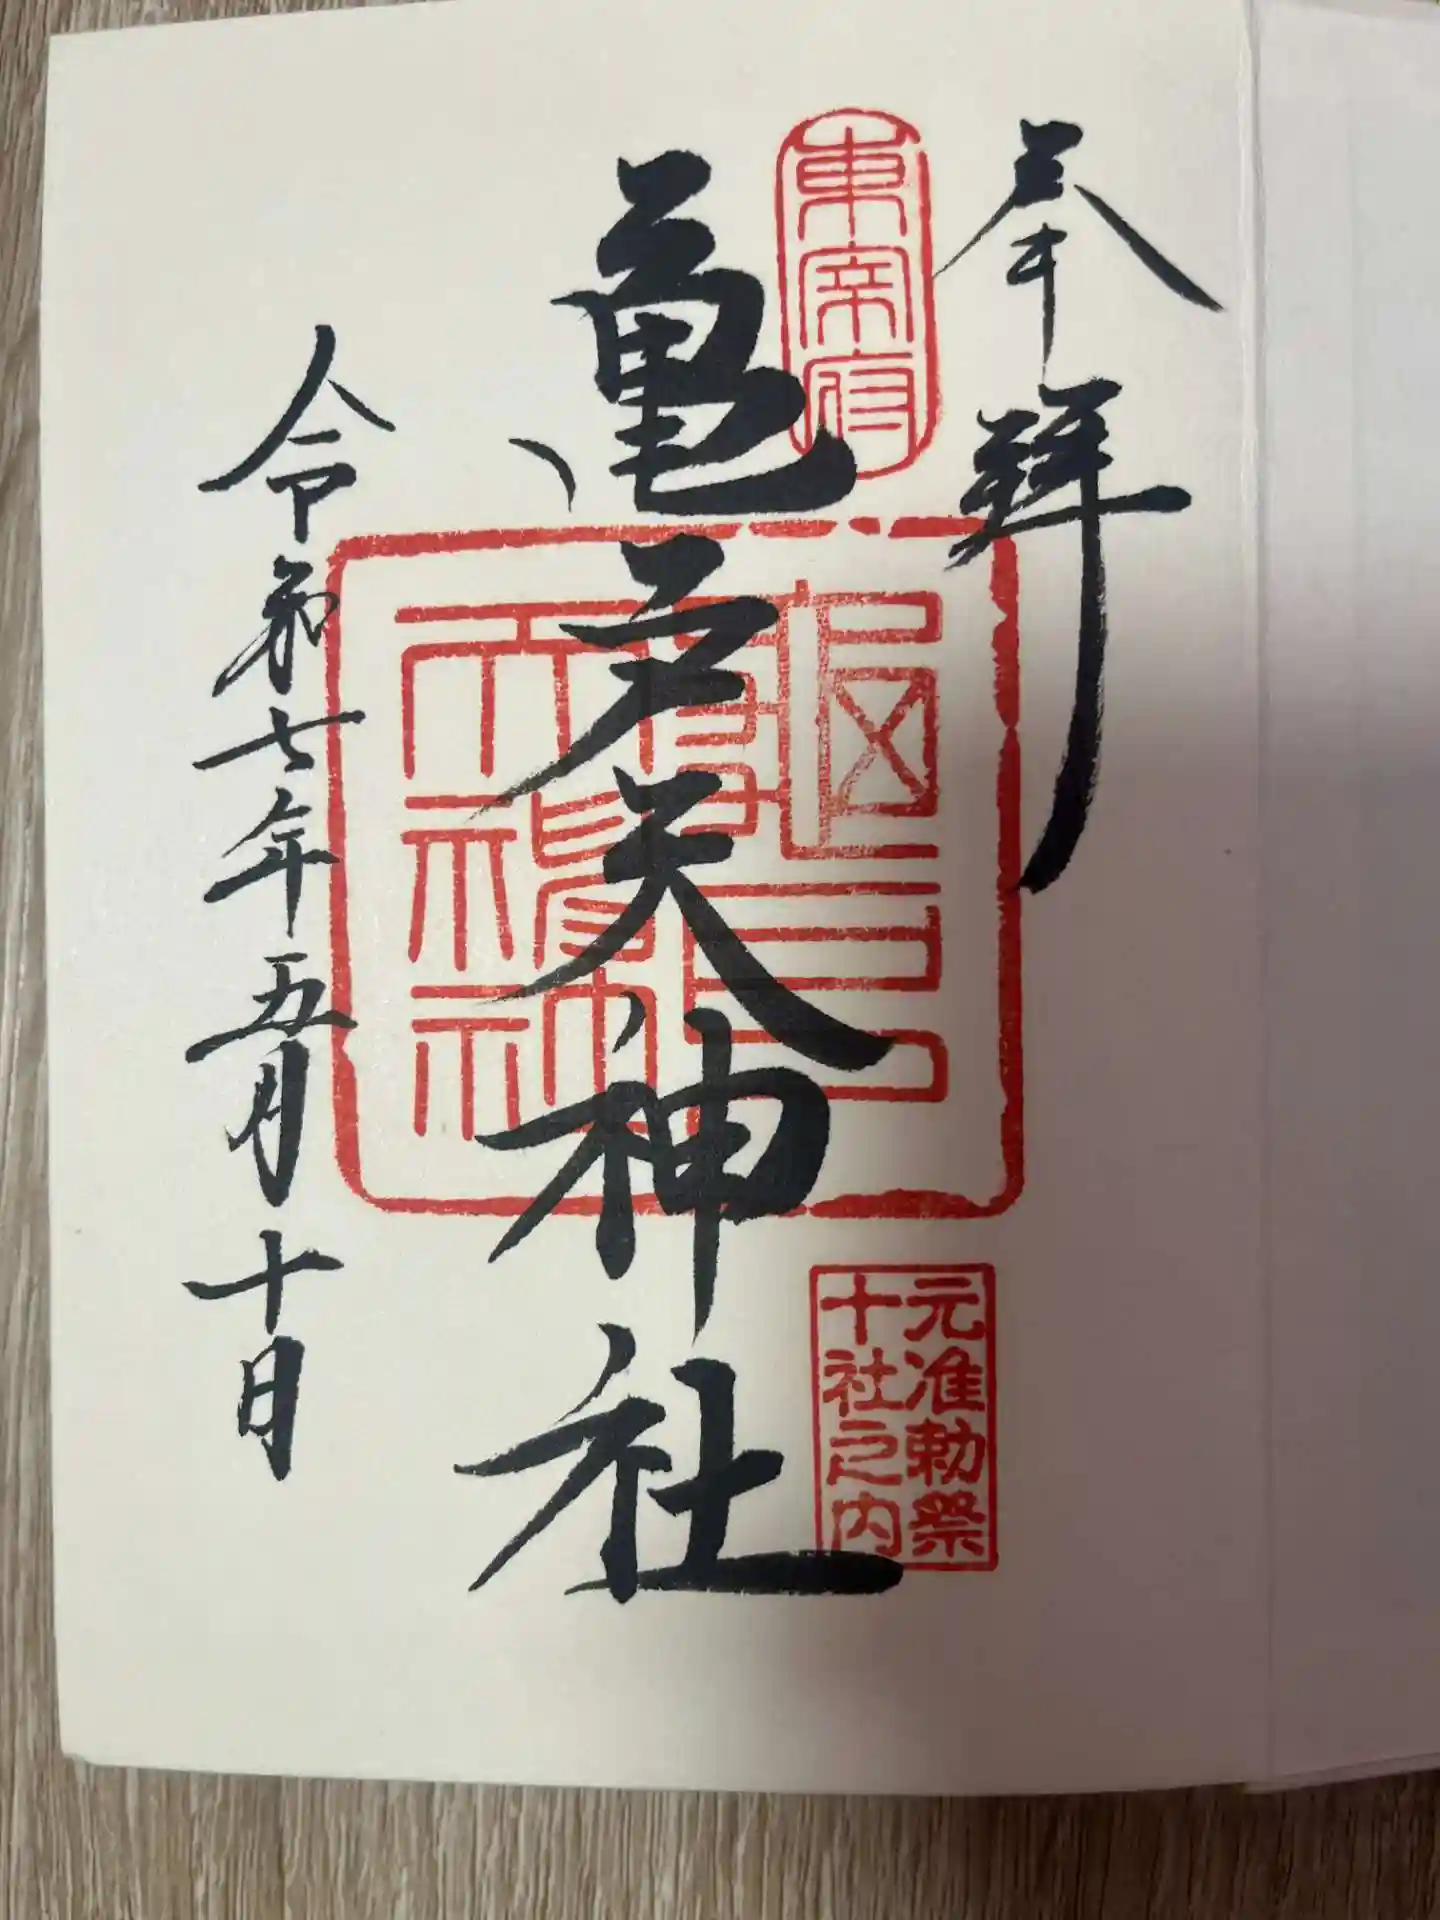 奉拝
東宰府
元准勅祭
十社之内
亀戸天神社
令和七年五月十日